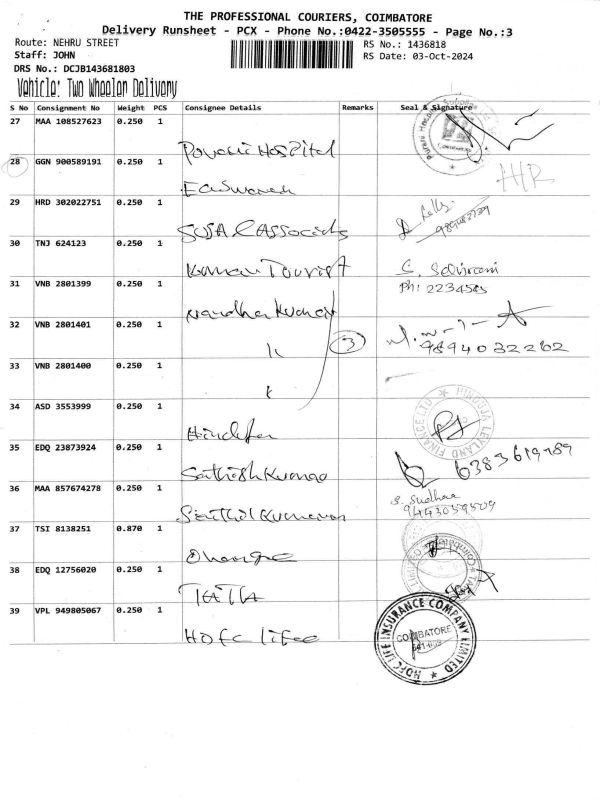 THE PROFESSIONAL COURIERS, COIMBATORE
Delivery Runsheet - PCX - Phone No.:0422-3505555 - Page No.:3
Route: NEHRU STREET
RS No.: 1436818
Staff: JOHN
RS Date: 03-Oct-2024
DRS No.: DCJB143681803
Vehicle: Two Wheeler Delivery
S No Consignment No Weight PCS Consignee Details Remarks Seal & Signature
27 MAA 108527623 0.250 1 Hospital
28 GGN 900589191 0.250 1 HR
29 HRD 302022751 0.250 1 SUSA & Associats
30 TNJ 624123 0.250 1 Tourist
31 VNB 2801399 0.250 1 Nandha Kumar Ph: 2234585
32 VNB 2801401 0.250 1 3 9894032262
33 VNB 2801400 0.250 1
34 ASD 3553999 0.250 1 HINDUJA LEYLAND FINANCE LTD
35 EDQ 23873924 0.250 1 Sathish
36 MAA 857674278 0.250 1 S. Sudhaa
37 TSI 8138251 0.870 1
38 EDQ 12756020 0.250 1 TATA
39 VPL 949805067 0.250 1 HDFC Life
HDFC LIFE INSURANCE COMPANY LIMITED
COIMBATORE